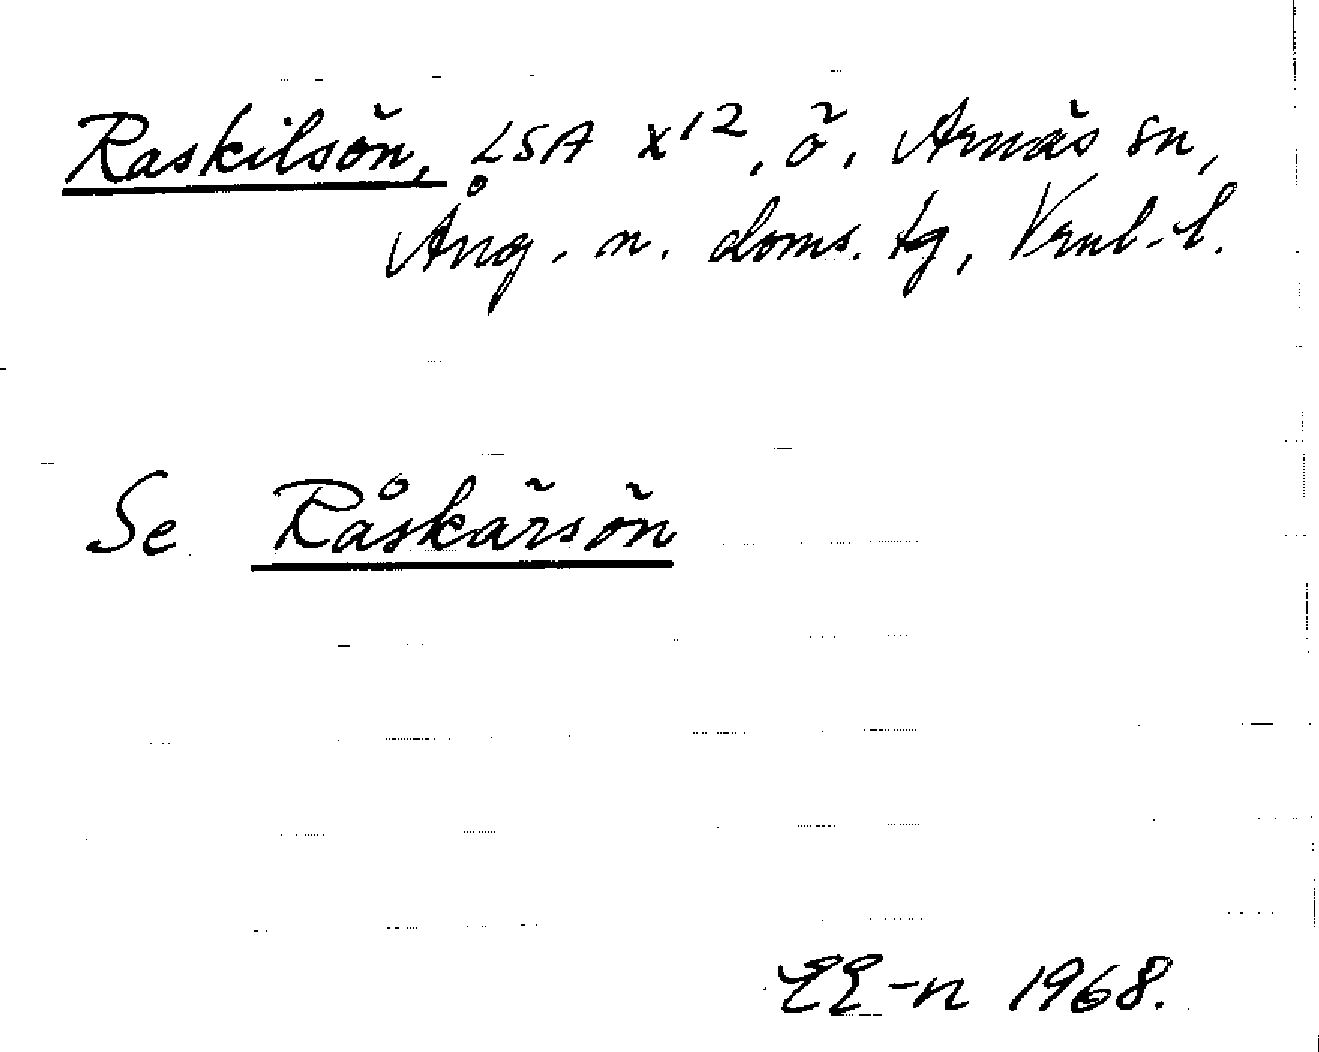 Raskilsön, LSA X¹², ö, Arnäs sn,
Ång. n. doms. tg, Vrnl. l.
Se Råskärsön
EE-n 1968.